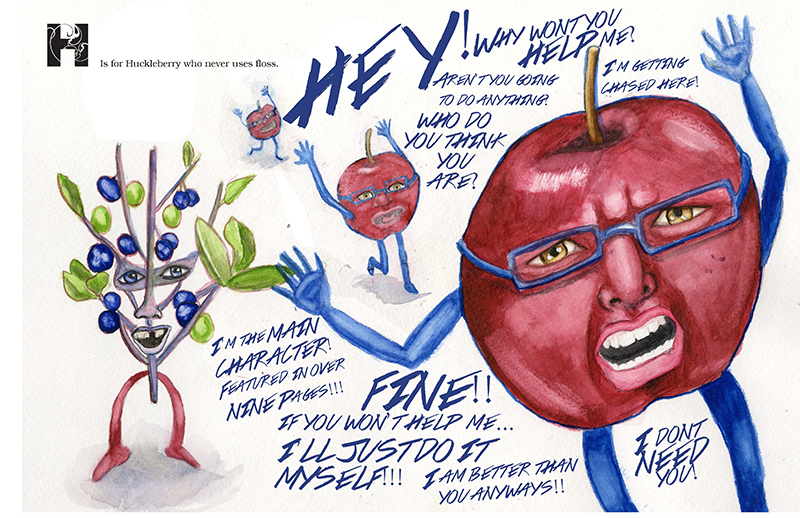 H
Is for Huckleberry who never uses floss.
HEY!
WHY WON'T YOU
HELP ME?
AREN'T YOU GOING
TO DO ANYTHING?
I'M GETTING
CHASED HERE!
WHO DO
YOU THINK
YOU
ARE?
I'M THE MAIN
CHARACTER!
FEATURED IN OVER
NINE PAGES!!!
FINE!!
IF YOU WON'T HELP ME...
I LL JUST DO IT
MYSELF!!!
I AM BETTER THAN
YOU ANYWAYS!!
I DONT
NEED
YOU!